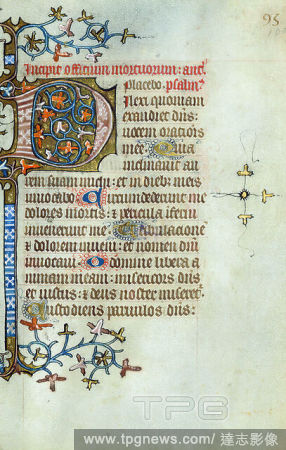 95
Incipit officium mortuorum: anc̄
placebo. psalm9
Dilexi quoniam
exaudiet dn̄s:
uocem orationis
mee. Quia
inclinauit au
rem suam michi: et in dieb9 meis
inuocabo. Circumdederunt me
dolores mortis: et pericula inferni
inuenerunt me. Tribulacionē
et dolorem inueni: et nomen dn̄i
inuocaui. O domine libera a
nimam meam: misericors dn̄s
et iustus: et deus noster miseret᷒.
Custodiens paruulos dn̄s:
TPG
www.tpgnews.com/ 達志影像